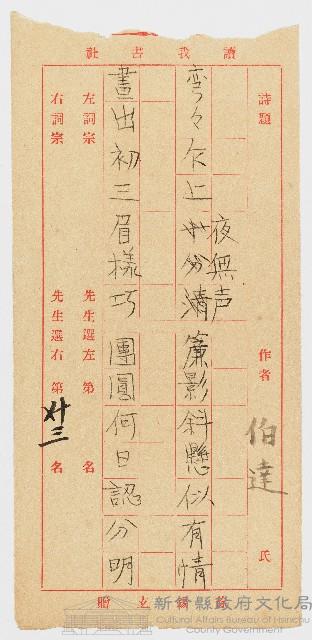 讀我書社
詩題
作者 伯達 氏
弯々欠上夜無声
簾影斜懸似有情
畫出初三眉樣巧
團圓何日認分明
左詞宗 先生選左第 名
右詞宗 先生選右第 廿三 名
贈
新竹縣政府文化局
Cultural Affairs Bureau of Hsinchu County Government